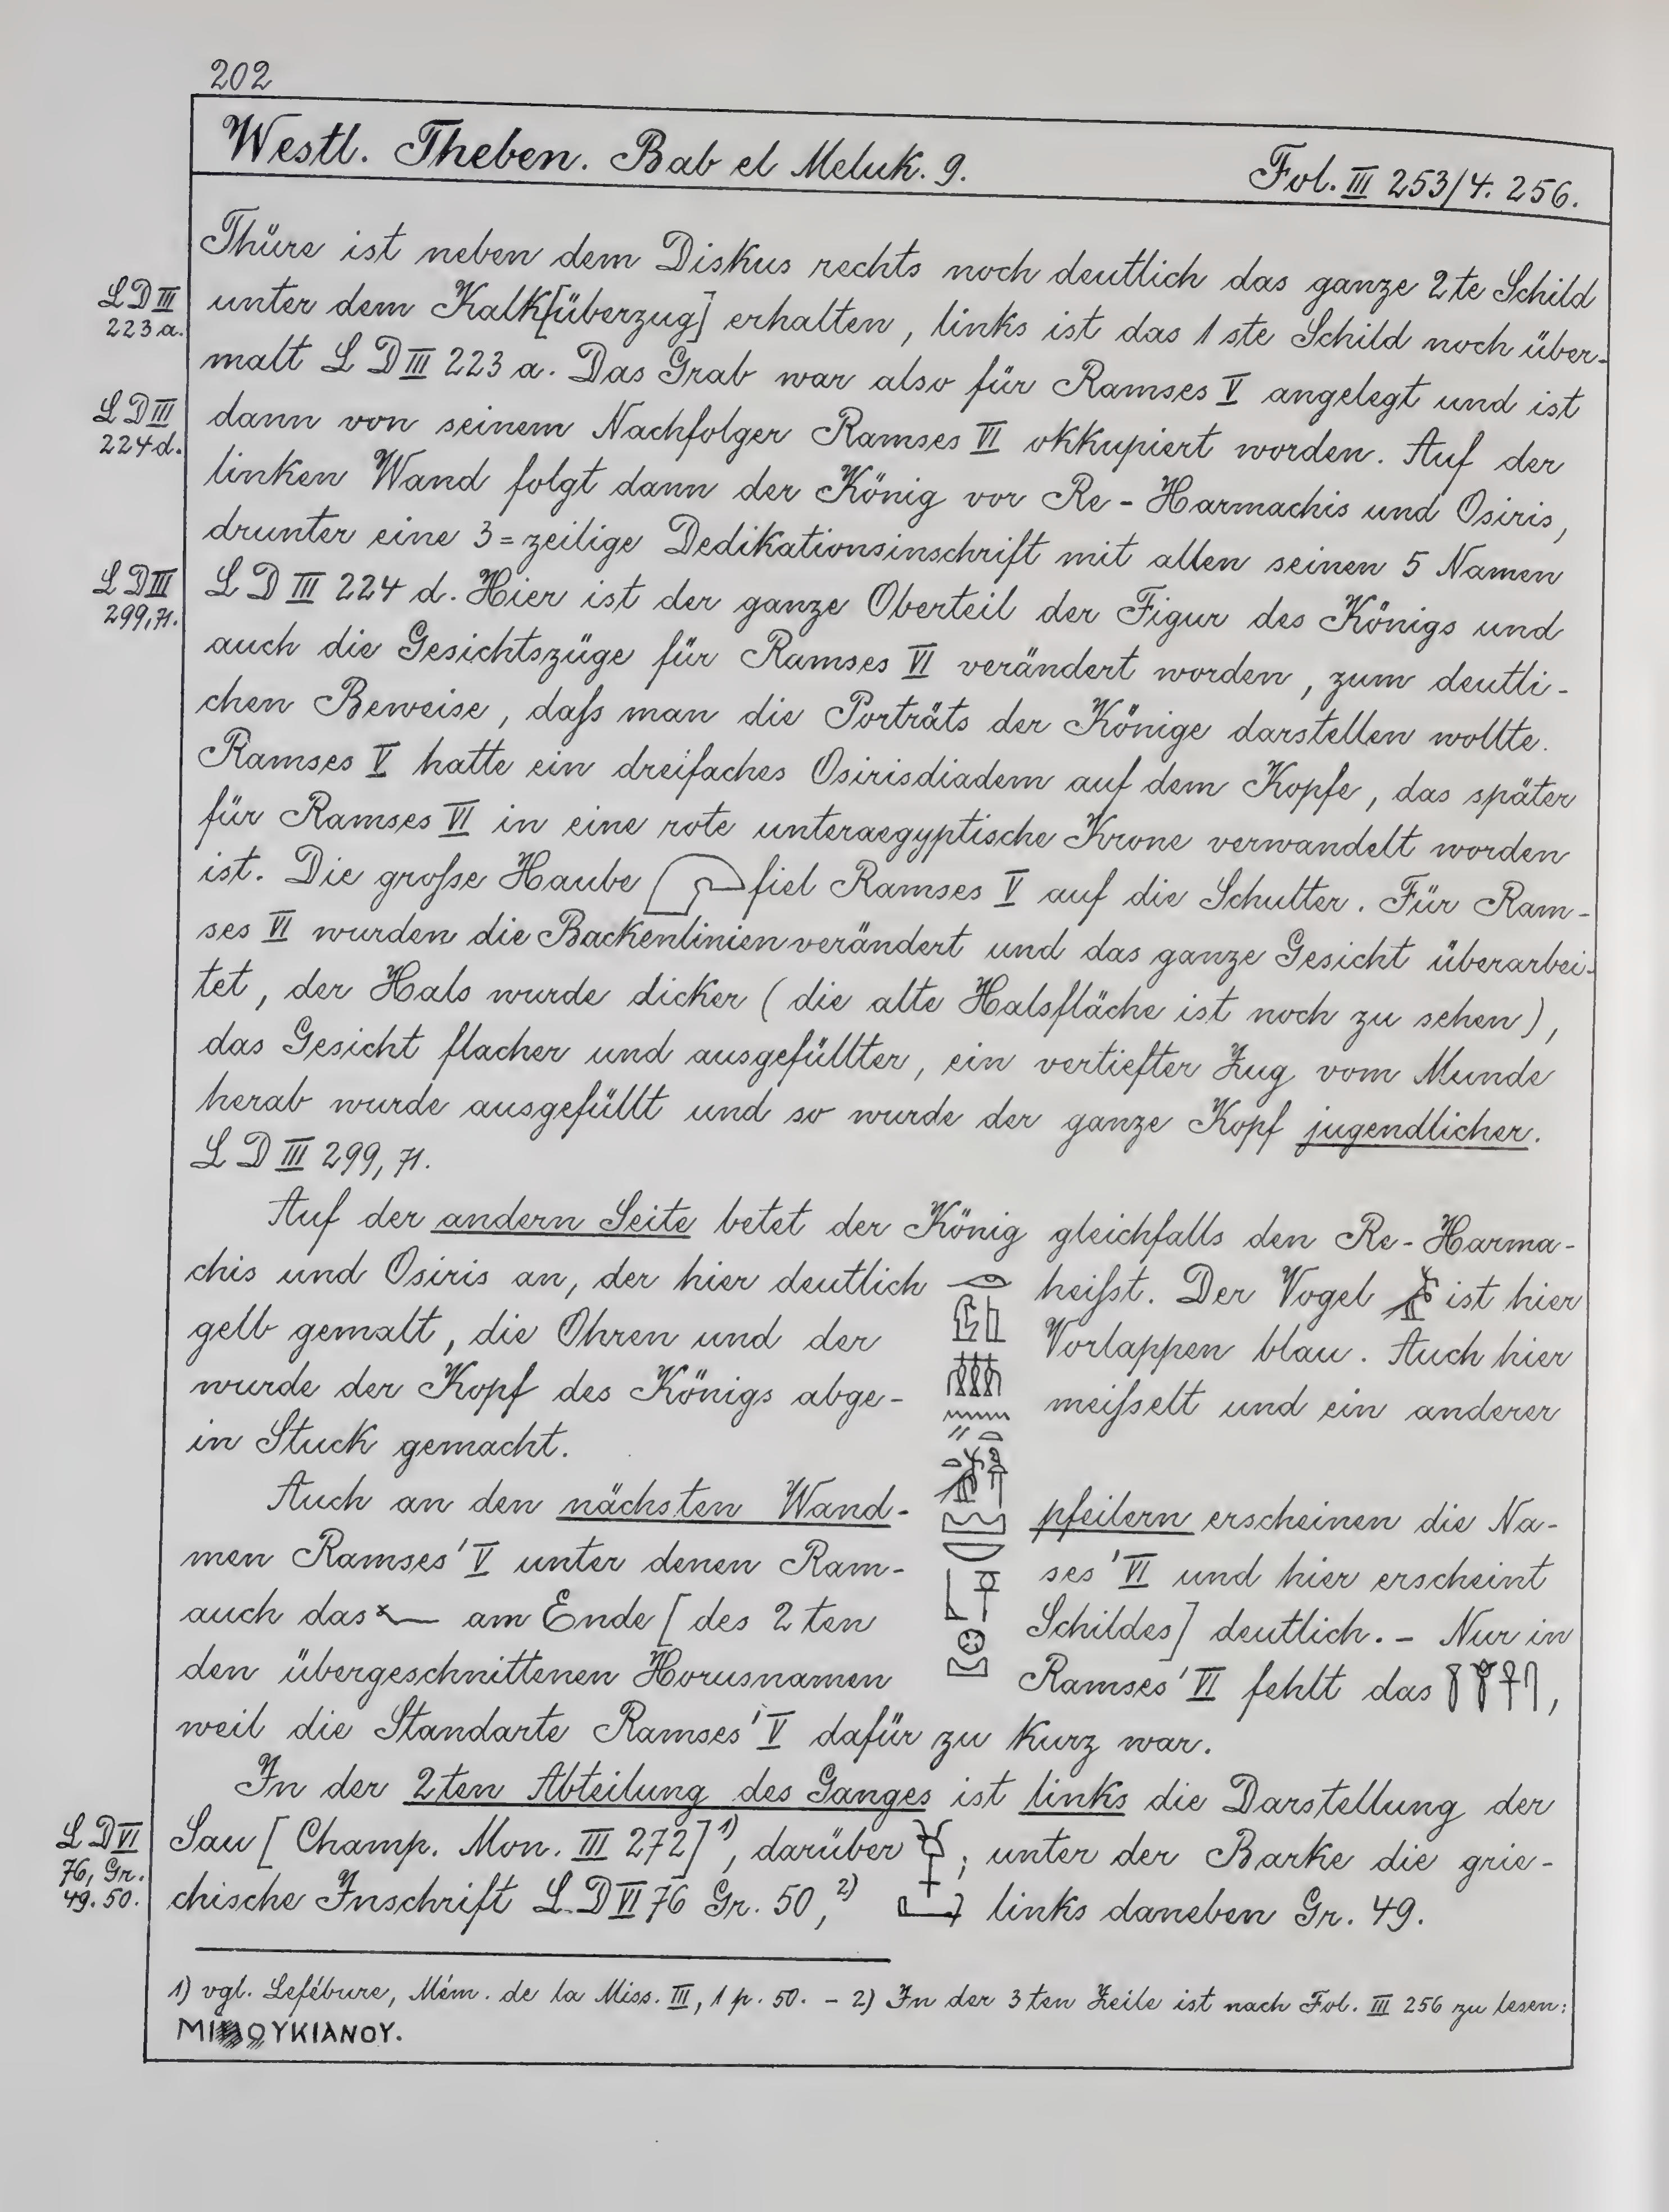 202
Westl. Theben. Bab el Meluk. 9. Fol. III 253/4. 256.
Thüre ist neben dem Diskus rechts noch deutlich das ganze 2te Schild
LD III 223 a.
unter dem Kalk[überzug] erhalten, links ist das 1ste Schild noch über-
malt LD III 223 a. Das Grab war also für Ramses V angelegt und ist
LD III 224 d.
dann von seinem Nachfolger Ramses VI okkupiert worden. Auf der
linken Wand folgt dann der König vor Re-Harmachis und Osiris,
drunter eine 3=zeilige Dedikationsinschrift mit allen seinen 5 Namen
LD III 299, 71.
LD III 224 d. Hier ist der ganze Oberteil der Figur des Königs und
auch die Gesichtszüge für Ramses VI verändert worden, zum deutli-
chen Beweise, daſs man die Porträts der Könige darstellen wollte.
Ramses V hatte ein dreifaches Osirisdiadem auf dem Kopfe, das später
für Ramses VI in eine rote unteraegyptische Krone verwandelt worden
ist. Die groſse Haube fiel Ramses V auf die Schulter. Für Ram-
ses VI wurden die Backenlinien verändert und das ganze Gesicht überarbei-
tet, der Hals wurde dicker (die alte Halsfläche ist noch zu sehen),
das Gesicht flacher und ausgefüllter, ein vertiefter Zug vom Munde
herab wurde ausgefüllt und so wurde der ganze Kopf jugendlicher.
LD III 299, 71.
Auf der andern Seite betet der König gleichfalls den Re-Harma-
chis und Osiris an, der hier deutlich heiſst. Der Vogel ist hier
gelb gemalt, die Ohren und der Vorlappen blau. Auch hier
wurde der Kopf des Königs abge- meiſselt und ein anderer
in Stuck gemacht.
Auch an den nächsten Wand- pfeilern erscheinen die Na-
men Ramses' V unter denen Ram- ses' VI und hier erscheint
auch das am Ende [des 2ten Schildes] deutlich. – Nur in
den übergeschnittenen Horusnamen Ramses' VI fehlt das ,
weil die Standarte Ramses' V dafür zu kurz war.
In der 2ten Abteilung des Ganges ist links die Darstellung der
LD VI 76, Gr. 49. 50.
Sau [Champ. Mon. III 272]¹⁾, darüber ; unter der Barke die grie-
chische Inschrift LD VI 76 Gr. 50,²⁾ links daneben Gr. 49.
1) vgl. Lefébure, Mém. de la Miss. III, 1 p. 50. – 2) In der 3ten Zeile ist nach Fol. III 256 zu lesen: